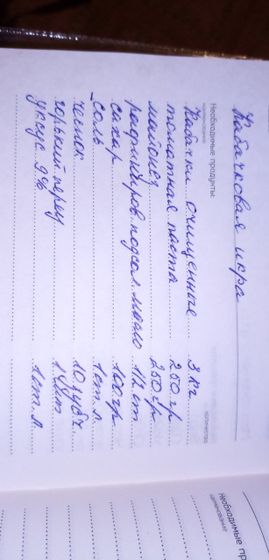 Кабачковая икра
Необходимые продукты:
наименование
количество
Кабачки очищенные 3 кг
томатная паста 250 гр
майонез 250 гр.
рафиниров подсол. масло 1/2 ст
сахар 100 гр.
соль 1 ст. л.
чеснок 10 зубч
горький перец 1 шт
уксус 9% 1 ст. л.
Необходимые пр
наименование